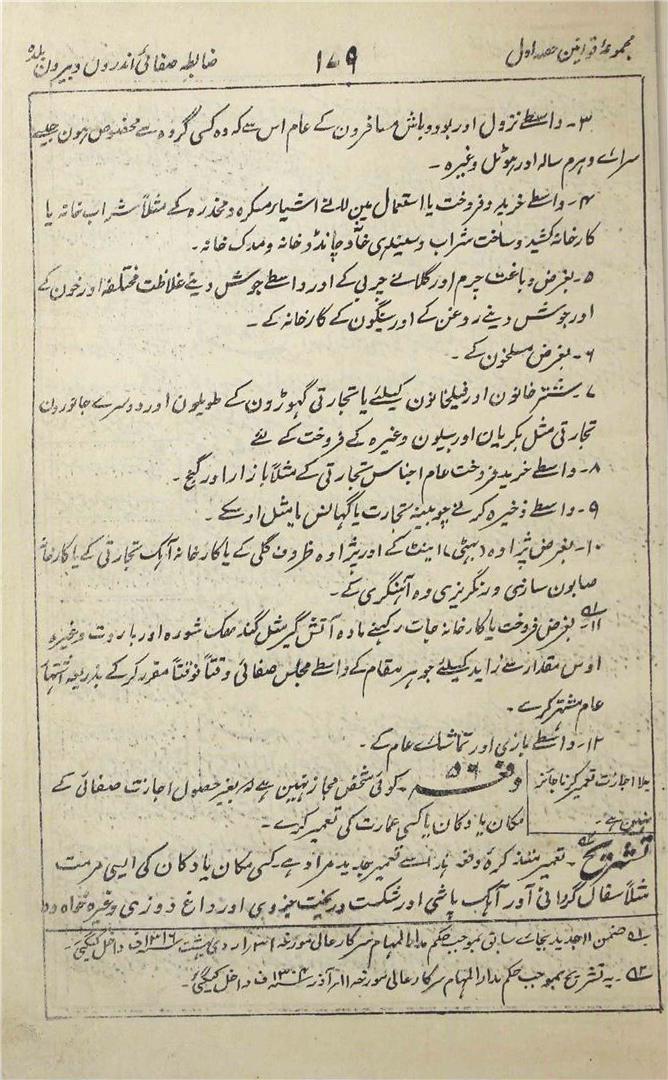 مجموعۂ قوانین حصہ اول
۱۷۹
ضابطہ صفائی اندرون و بیرون بلدہ
۳- واسطے نزول اور بود و باش مسافرون کے عام اس سے کہ وہ کسی گروہ سے مخصوص ہون جیسے
سرائے و ہرم سالہ اور ہوٹل وغیرہ -
۴- واسطے خرید و فروخت یا استعمال مین لانے اشیاء مسکرہ و مخدرہ کے مثلاً شراب خانہ یا
کارخانہ کشید و ساخت شراب و سیندہی خانہ و چانڈو خانہ و مدک خانہ -
۵- بغرض دباغت چرم اور گلانے چربی کے اور واسطے جوش دینے غلاظت مختلفہ اور خون کے
اور جوش دینے روغن کے اور سنگون کے کارخانہ کے -
۶- بغرض مسلخون کے -
۷- شترخانون اور فیلخانون کیلئے یا تجارتی گہوڑون کے طویلون اور دوسرے جانورون
تجارتی مثل بکریان اور بیلون وغیرہ کے فروخت کے لئے
۸- واسطے خرید فروخت عام اجناس تجارتی کے مثلاً بازار اور گنج -
۹- واسطے ذخیرہ کرنے چوبینہ تجارت یا گہانس یا مثل اوسکے -
۱۰- بغرض پژاوہ (بہٹی) اینٹ کے اور پژاوہ ظروف گلی کے یا کارخانہ آہک تجارتی کے یا کارخانہ
صابون سازی و رنگریزی وہ آہنگری کے -
۱۱- بغرض فروخت یا کارخانہ جات رکہنے مادہ آتش گیر مثل گندہک شورہ اور باروت وغیرہ
اوس مقدار سے زاید کیلئے جو ہر مقام کے واسطے مجلس صفائی وقتاً فوقتاً مقرر کرکے بذریعہ اشتہار
عام مشتہر کرے -
۱۲- واسطے بازی اور تماشہائے عام کے -
بلا اجازت تعمیر کرنا جائز
نہین ہے -
دفعہ ۵ - کوئی شخص مجاز نہین ہے کہ بغیر حصول اجازت صفائی کے
مکان یا دکان یا کسی عمارت کی تعمیر کرے -
تشریح - تعمیر متذکرۂ دفعہ ہذا سے تعمیر جدید مراد ہے - کسی مکان یا دکان کی ایسی مرمت
مثلاً سفال گردانی اور آہک پاشی اور شکست و ریخت جزوی اور داغ دوزی وغیرہ خواہ وہ
۱ھ ضمن ۱۱ جدید بجائے سابق بموجب حکم مدارالمہام سرکار عالی مورخہ ۳۱ اردی بہشت ۱۳۱۶ف داخل کیگئی -
۲ھ - یہ تشریح بموجب حکم مدارالمہام سرکار عالی مورخہ ۱۱ آذر ۱۳۰۴ف داخل کیگئی -